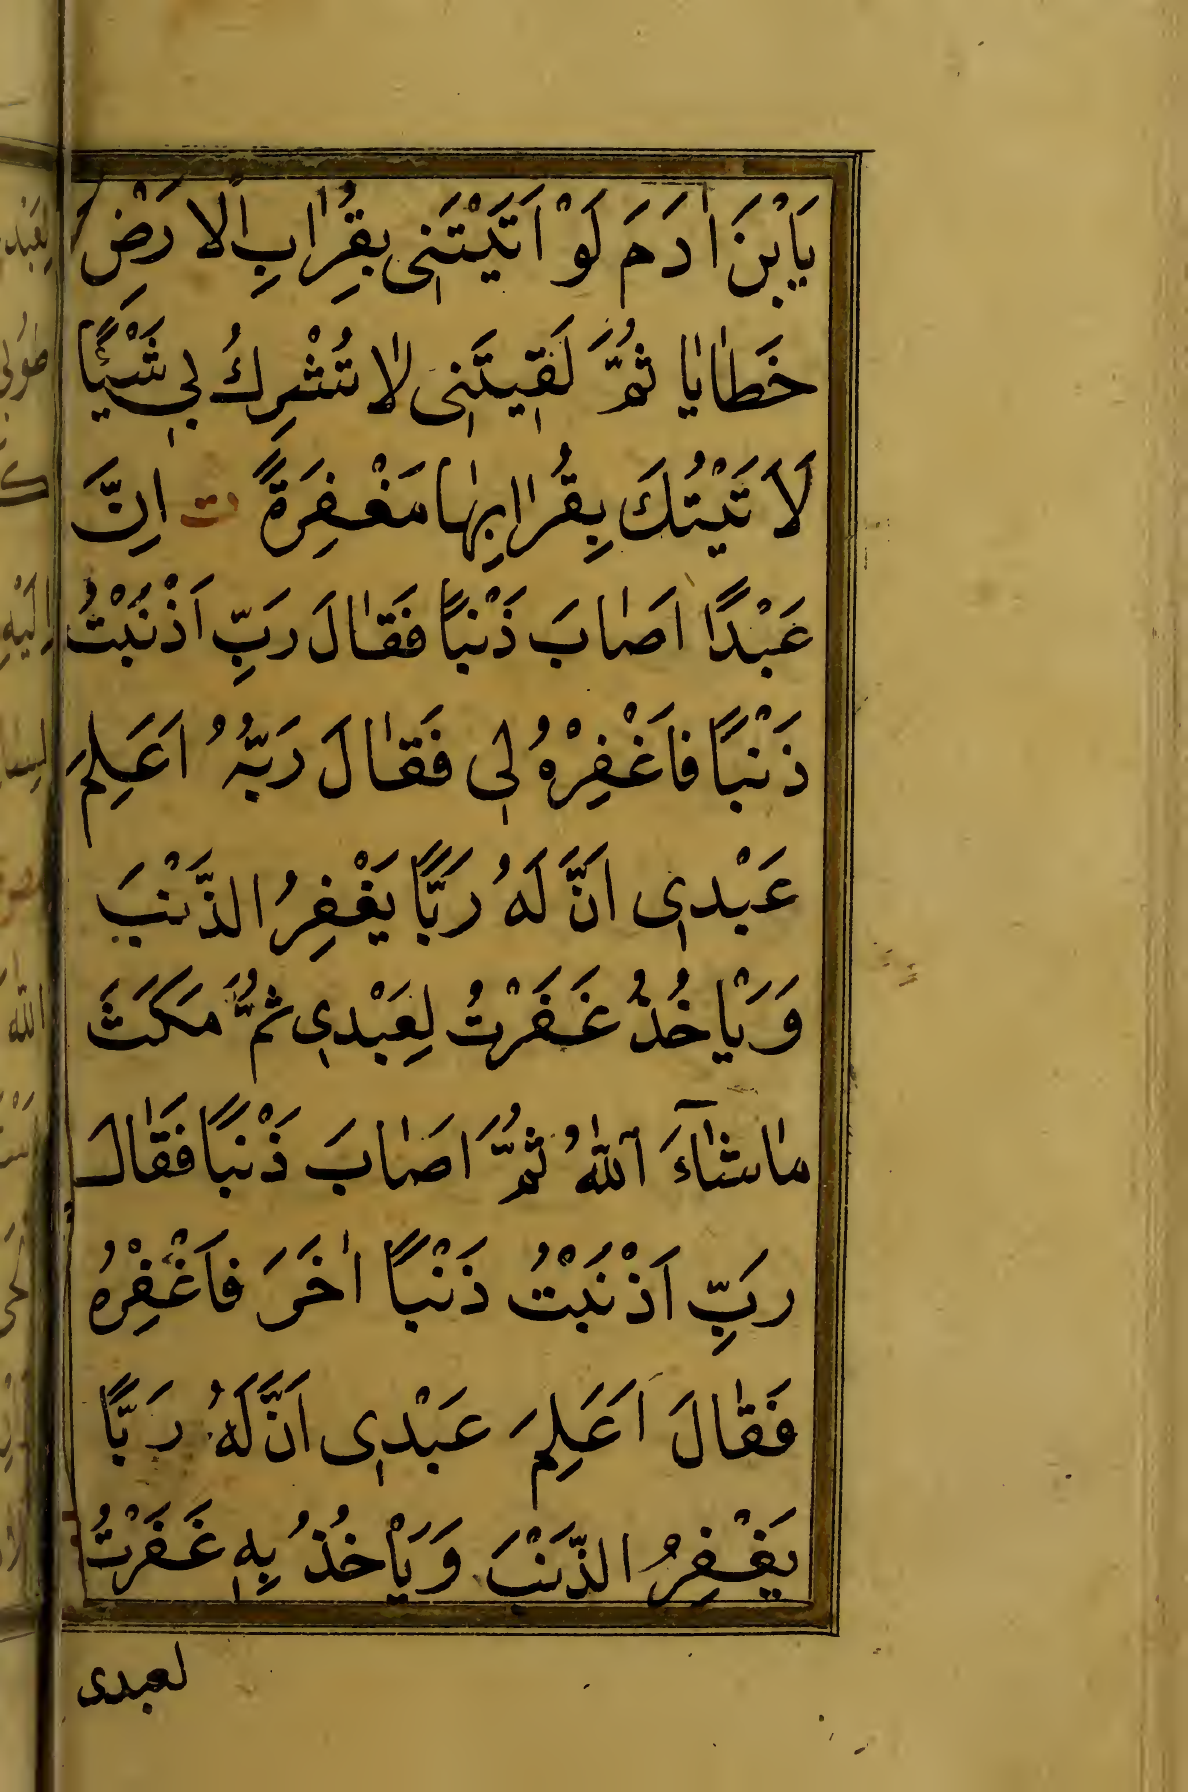 يَابْنَ اٰدَمَ لَوْ اَتَيْتَنٖى بِقُرٰابِ الْاَرْضِ
خَطٰايٰا ثُمَّ لَقٖيتَنٖى لٰا تُشْرِكُ بٖى شَيْئًا
لَاَتَيْتُكَ بِقُرٰابِهٰا مَغْفِرَةً ت اِنَّ
عَبْدًا اَصٰابَ ذَنْبًا فَقٰالَ رَبِّ اَذْنَبْتُ
ذَنْبًا فَاغْفِرْهُ لٖى فَقٰالَ رَبُّهُ اَعَلِمَ
عَبْدٖى اَنَّ لَهُ رَبًّا يَغْفِرُ الذَّنْبَ
وَيَاْخُذُ غَفَرْتُ لِعَبْدٖى ثُمَّ مَكَثَ
مٰا شٰاءَ اللّٰهُ ثُمَّ اَصٰابَ ذَنْبًا فَقٰالَ
رَبِّ اَذْنَبْتُ ذَنْبًا اٰخَرَ فَاغْفِرْهُ
فَقٰالَ اَعَلِمَ عَبْدٖى اَنَّ لَهُ رَبًّا
يَغْفِرُ الذَّنْبَ وَيَاْخُذُ بِهٖ غَفَرْتُ
لعبدى